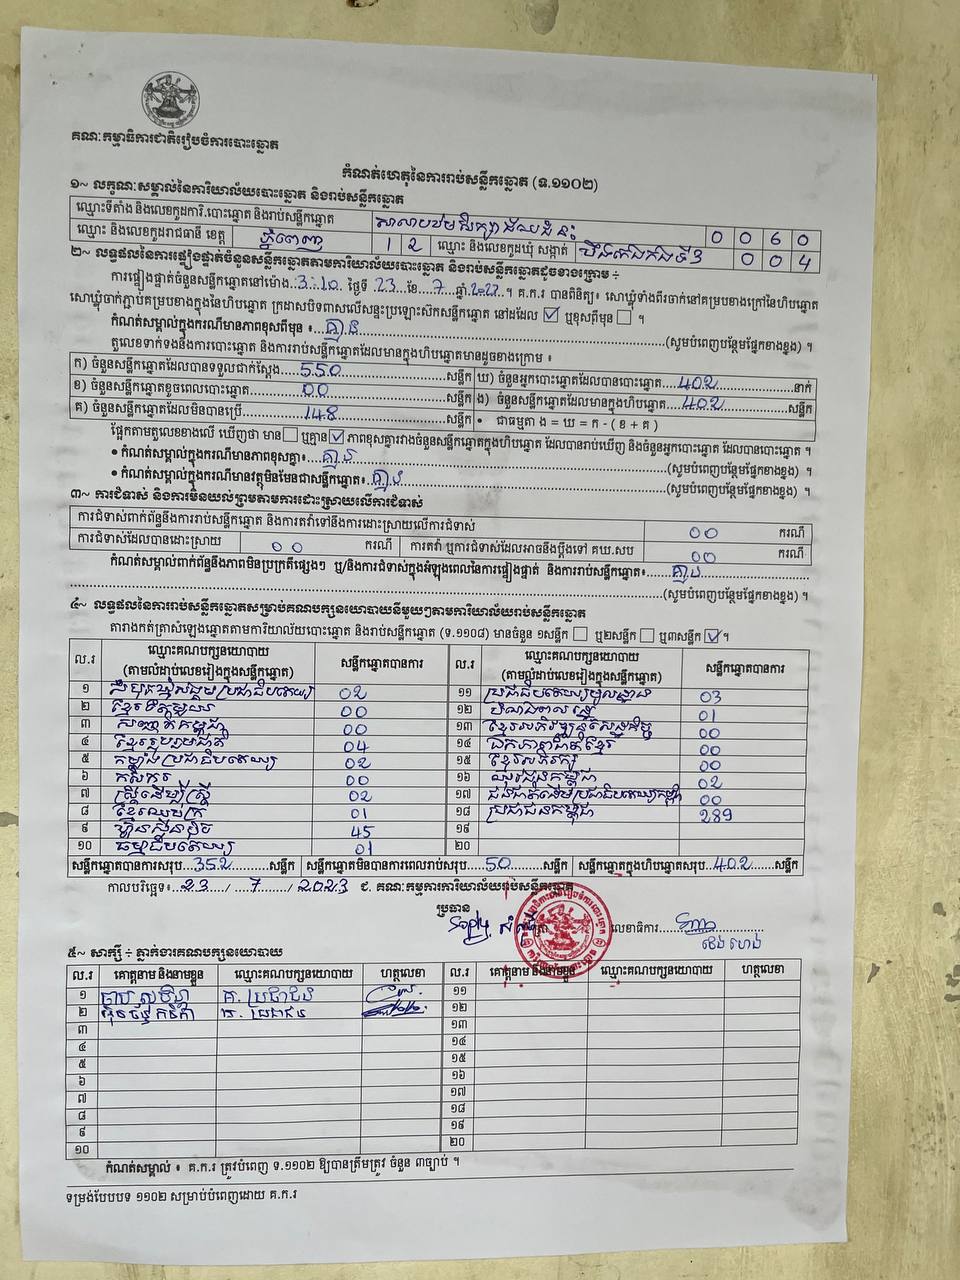 គណៈកម្មាធិការជាតិរៀបចំការបោះឆ្នោត
កំណត់ហេតុនៃការរាប់សន្លឹកឆ្នោត (ទ.១១០២)
១~ លក្ខណៈសម្គាល់នៃការិយាល័យបោះឆ្នោត និងរាប់សន្លឹកឆ្នោត
ឈ្មោះទីតាំង និងលេខកូដការិ.បោះឆ្នោត និងរាប់សន្លឹកឆ្នោត 0 0 6 0
ឈ្មោះ និងលេខកូដរាជធានី ខេត្ត ភ្នំពេញ 1 2 ឈ្មោះ និងលេខកូដឃុំ សង្កាត់ បឹងកេងកងទី៣ 0 0 4
២~ លទ្ធផលនៃការផ្ទៀងផ្ទាត់ចំនួនសន្លឹកឆ្នោតតាមការិយាល័យបោះឆ្នោត និងរាប់សន្លឹកឆ្នោតដូចខាងក្រោម ÷
ការផ្ទៀងផ្ទាត់ចំនួនសន្លឹកឆ្នោតនៅម៉ោង 3:10 ថ្ងៃទី 23 ខែ 7 ឆ្នាំ ។ គ.ក.រ បានពិនិត្យ៖ សោឃ្លុំទាំងពីរចាក់នៅគម្របខាងក្រៅនៃហិបឆ្នោត
សោឃ្លុំចាក់ភ្ជាប់គម្របខាងក្នុងនៃហិបឆ្នោត ក្រដាសបិទពាសលើសន្ទះប្រឡោះស៊កសន្លឹកឆ្នោត នៅដដែល ☑ ឬខុសពីមុន ☐ ។
កំណត់សម្គាល់ក្នុងករណីមានភាពខុសពីមុន ៖ គ្មាន (សូមបំពេញបន្ថែមផ្នែកខាងខ្នង) ។
តួលេខទាក់ទងនឹងការបោះឆ្នោត និងការរាប់សន្លឹកឆ្នោតដែលមានក្នុងហិបឆ្នោតមានដូចខាងក្រោម ៖
ក) ចំនួនសន្លឹកឆ្នោតដែលបានទទួលជាក់ស្តែង 550 សន្លឹក ឃ) ចំនួនអ្នកបោះឆ្នោតដែលបានបោះឆ្នោត 402 នាក់
ខ) ចំនួនសន្លឹកឆ្នោតខូចពេលបោះឆ្នោត 00 សន្លឹក ង) ចំនួនសន្លឹកឆ្នោតដែលមានក្នុងហិបឆ្នោត 402 សន្លឹក
គ) ចំនួនសន្លឹកឆ្នោតដែលមិនបានប្រើ 148 សន្លឹក • ជាធម្មតា ង = ឃ = ក - ( ខ + គ )
ផ្អែកតាមតួលេខខាងលើ ឃើញថា មាន ☐ ឬគ្មាន ☑ ភាពខុសគ្នារវាងចំនួនសន្លឹកឆ្នោតក្នុងហិបឆ្នោត ដែលបានរាប់ឃើញ និងចំនួនអ្នកបោះឆ្នោត ដែលបានបោះឆ្នោត ។
• កំណត់សម្គាល់ក្នុងករណីមានភាពខុសគ្នា៖ គ្មាន (សូមបំពេញបន្ថែមផ្នែកខាងខ្នង) ។
• កំណត់សម្គាល់ក្នុងករណីមានវត្ថុមិនមែនជាសន្លឹកឆ្នោត៖ គ្មាន (សូមបំពេញបន្ថែមផ្នែកខាងខ្នង) ។
៣~ ការជំទាស់ និងការមិនយល់ព្រមតាមការដោះស្រាយលើការជំទាស់
ការជំទាស់ពាក់ព័ន្ធនឹងការរាប់សន្លឹកឆ្នោត និងការតវ៉ាទៅនឹងការដោះស្រាយលើការជំទាស់ 00 ករណី
ការជំទាស់ដែលបានដោះស្រាយ 00 ករណី ការតវ៉ា ឬការជំទាស់ដែលអាចនឹងប្តឹងទៅ គឃ.សប 00 ករណី
កំណត់សម្គាល់ពាក់ព័ន្ធនឹងភាពមិនប្រក្រតីផ្សេងៗ ឬ/និងការជំទាស់ក្នុងអំឡុងពេលនៃការផ្ទៀងផ្ទាត់ និងការរាប់សន្លឹកឆ្នោត៖ គ្មាន
(សូមបំពេញបន្ថែមផ្នែកខាងខ្នង) ។
៤~ លទ្ធផលនៃការរាប់សន្លឹកឆ្នោតសម្រាប់គណបក្សនយោបាយនីមួយៗតាមការិយាល័យរាប់សន្លឹកឆ្នោត
តារាងកត់ត្រាសំឡេងឆ្នោតតាមការិយាល័យបោះឆ្នោត និងរាប់សន្លឹកឆ្នោត (ទ.១១០៨) មានចំនួន ១សន្លឹក ☐ ឬ២សន្លឹក ☐ ឬ៣សន្លឹក ☑ ។
ល.រ ឈ្មោះគណបក្សនយោបាយ (តាមលំដាប់លេខរៀងក្នុងសន្លឹកឆ្នោត) សន្លឹកឆ្នោតបានការ ល.រ ឈ្មោះគណបក្សនយោបាយ (តាមលំដាប់លេខរៀងក្នុងសន្លឹកឆ្នោត) សន្លឹកឆ្នោតបានការ
១ សំបុកឃ្មុំសង្គមប្រជាធិបតេយ្យ 02 ១១ ប្រជាធិបតេយ្យមូលដ្ឋាន 03
២ ខ្មែររួបរួម 00 ១២ 01
៣ សញ្ជាតិកម្ពុជា 00 ១៣ ខ្មែរអភិវឌ្ឍន៍សេដ្ឋកិច្ច 00
៤ ខ្មែររួបរួមជាតិ 04 ១៤ ឯកភាពជាតិខ្មែរ 00
៥ កម្លាំងប្រជាធិបតេយ្យ 02 ១៥ ខ្មែរអភិរក្ស 00
៦ កសិករ 00 ១៦ យុវជនកម្ពុជា 02
៧ ស្ត្រីដើម្បីស្ត្រី 02 ១៧ ជនជាតិដើមប្រជាធិបតេយ្យកម្ពុជា 00
៨ ខ្មែរឈប់ក្រ 01 ១៨ ប្រជាជនកម្ពុជា 289
៩ ហ៊្វុនស៊ិនប៉ិច 45 ១៩
១០ ធម្មាធិបតេយ្យ 01 ២០
សន្លឹកឆ្នោតបានការសរុប 352 សន្លឹក សន្លឹកឆ្នោតមិនបានការពេលរាប់សរុប 50 សន្លឹក សន្លឹកឆ្នោតក្នុងហិបឆ្នោតសរុប 402 សន្លឹក
កាលបរិច្ឆេទ៖ 23 / 7 / 2023 ជ. គណៈកម្មការការិយាល័យរាប់សន្លឹកឆ្នោត
ប្រធាន
លេខាធិការ
៥~ សាក្សី ÷ ភ្នាក់ងារគណបក្សនយោបាយ
ល.រ គោត្តនាម និងនាមខ្លួន ឈ្មោះគណបក្សនយោបាយ ហត្ថលេខា ល.រ គោត្តនាម និងនាមខ្លួន ឈ្មោះគណបក្សនយោបាយ ហត្ថលេខា
១ គ. ប្រជាជន ១១
២ គ. ប្រជាជន ១២
៣ ១៣
៤ ១៤
៥ ១៥
៦ ១៦
៧ ១៧
៨ ១៨
៩ ១៩
១០ ២០
កំណត់សម្គាល់ ៖ គ.ក.រ ត្រូវបំពេញ ទ.១១០២ ឱ្យបានត្រឹមត្រូវ ចំនួន ៣ច្បាប់ ។
ទម្រង់បែបបទ ១១០២ សម្រាប់បំពេញដោយ គ.ក.រ